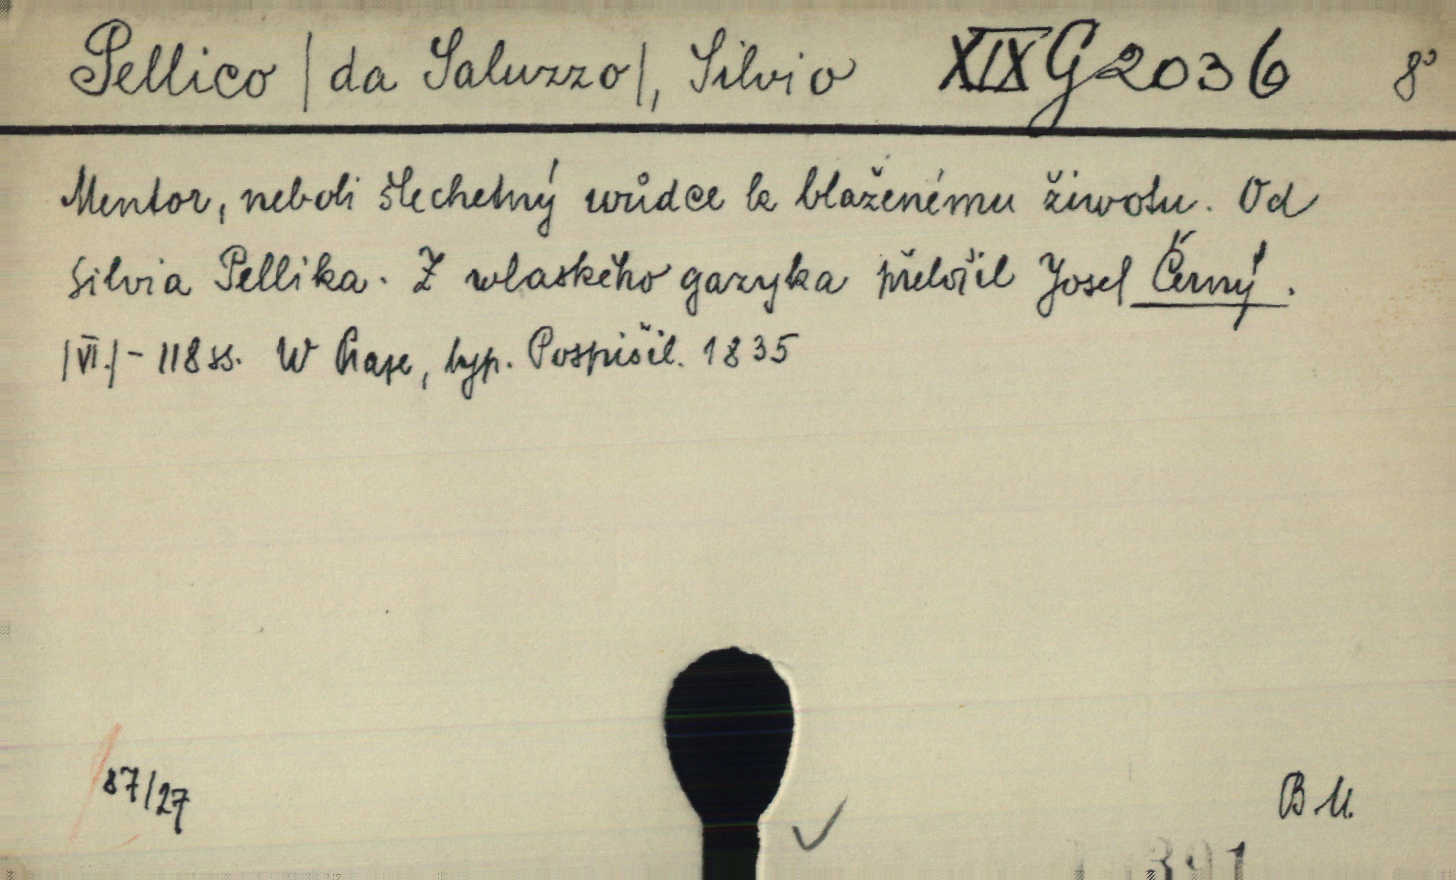 Pellico /da Saluzzo/, Silvio XIX G 2036 8°
Mentor, neboli šlechetný wůdce k blaženému žiwotu. Od
Silvia Pellika. Z wlaského gazyka přeložil Josef Černý.
/VI./ - 118 ss. W Praze, typ. Pospíšil. 1835
87/27
BM.
391